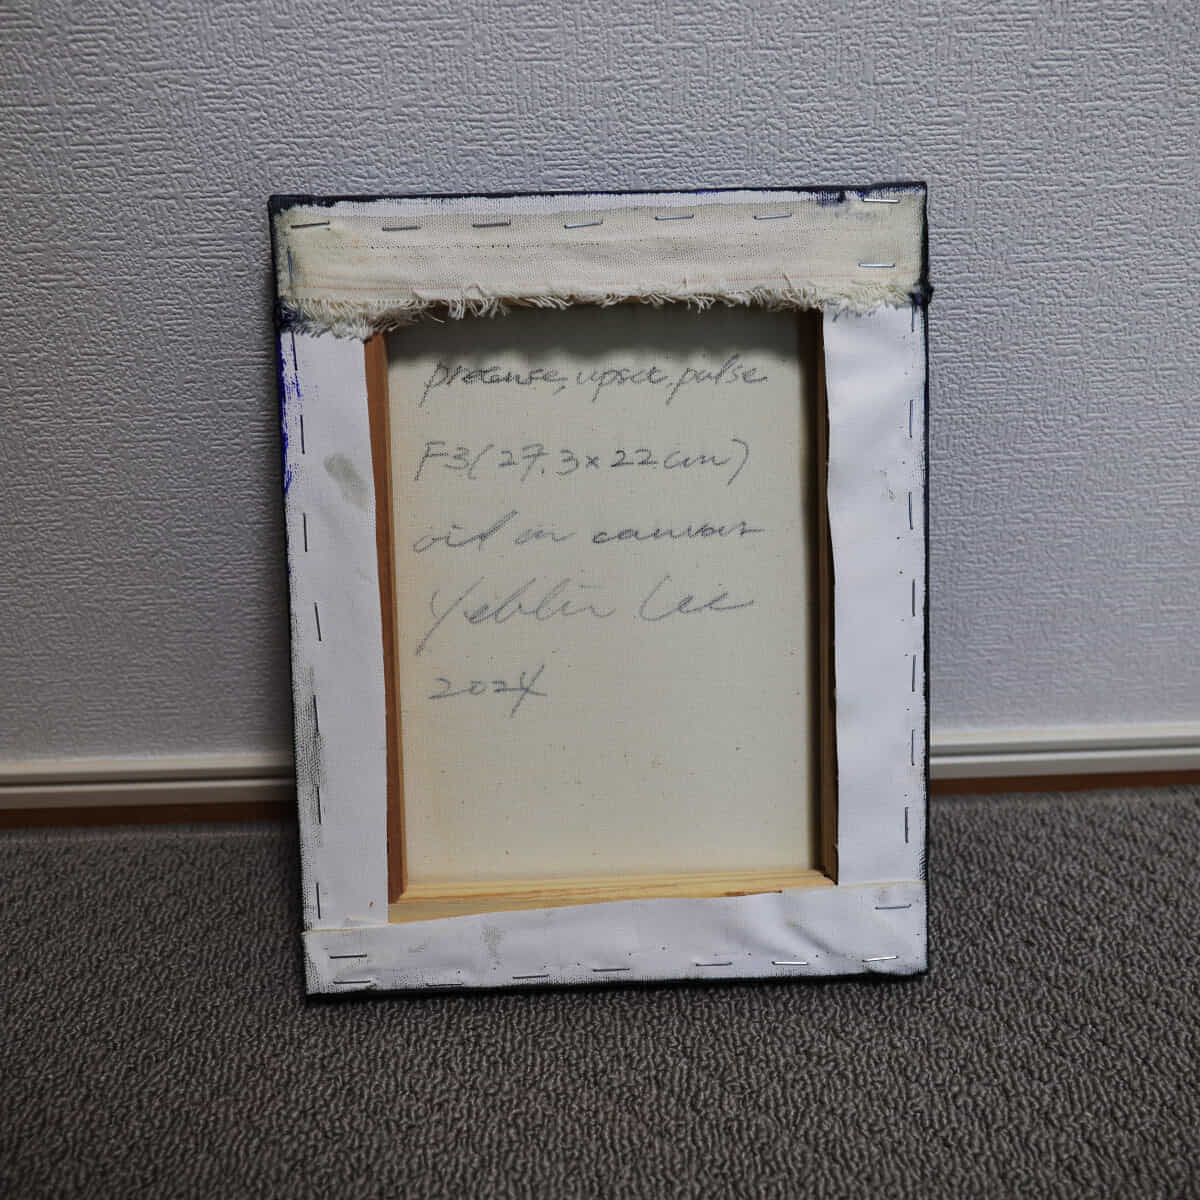 pretense, upset, pulse
F3(27.3×22cm)
oil on canvas
Yeblin Lee
2024